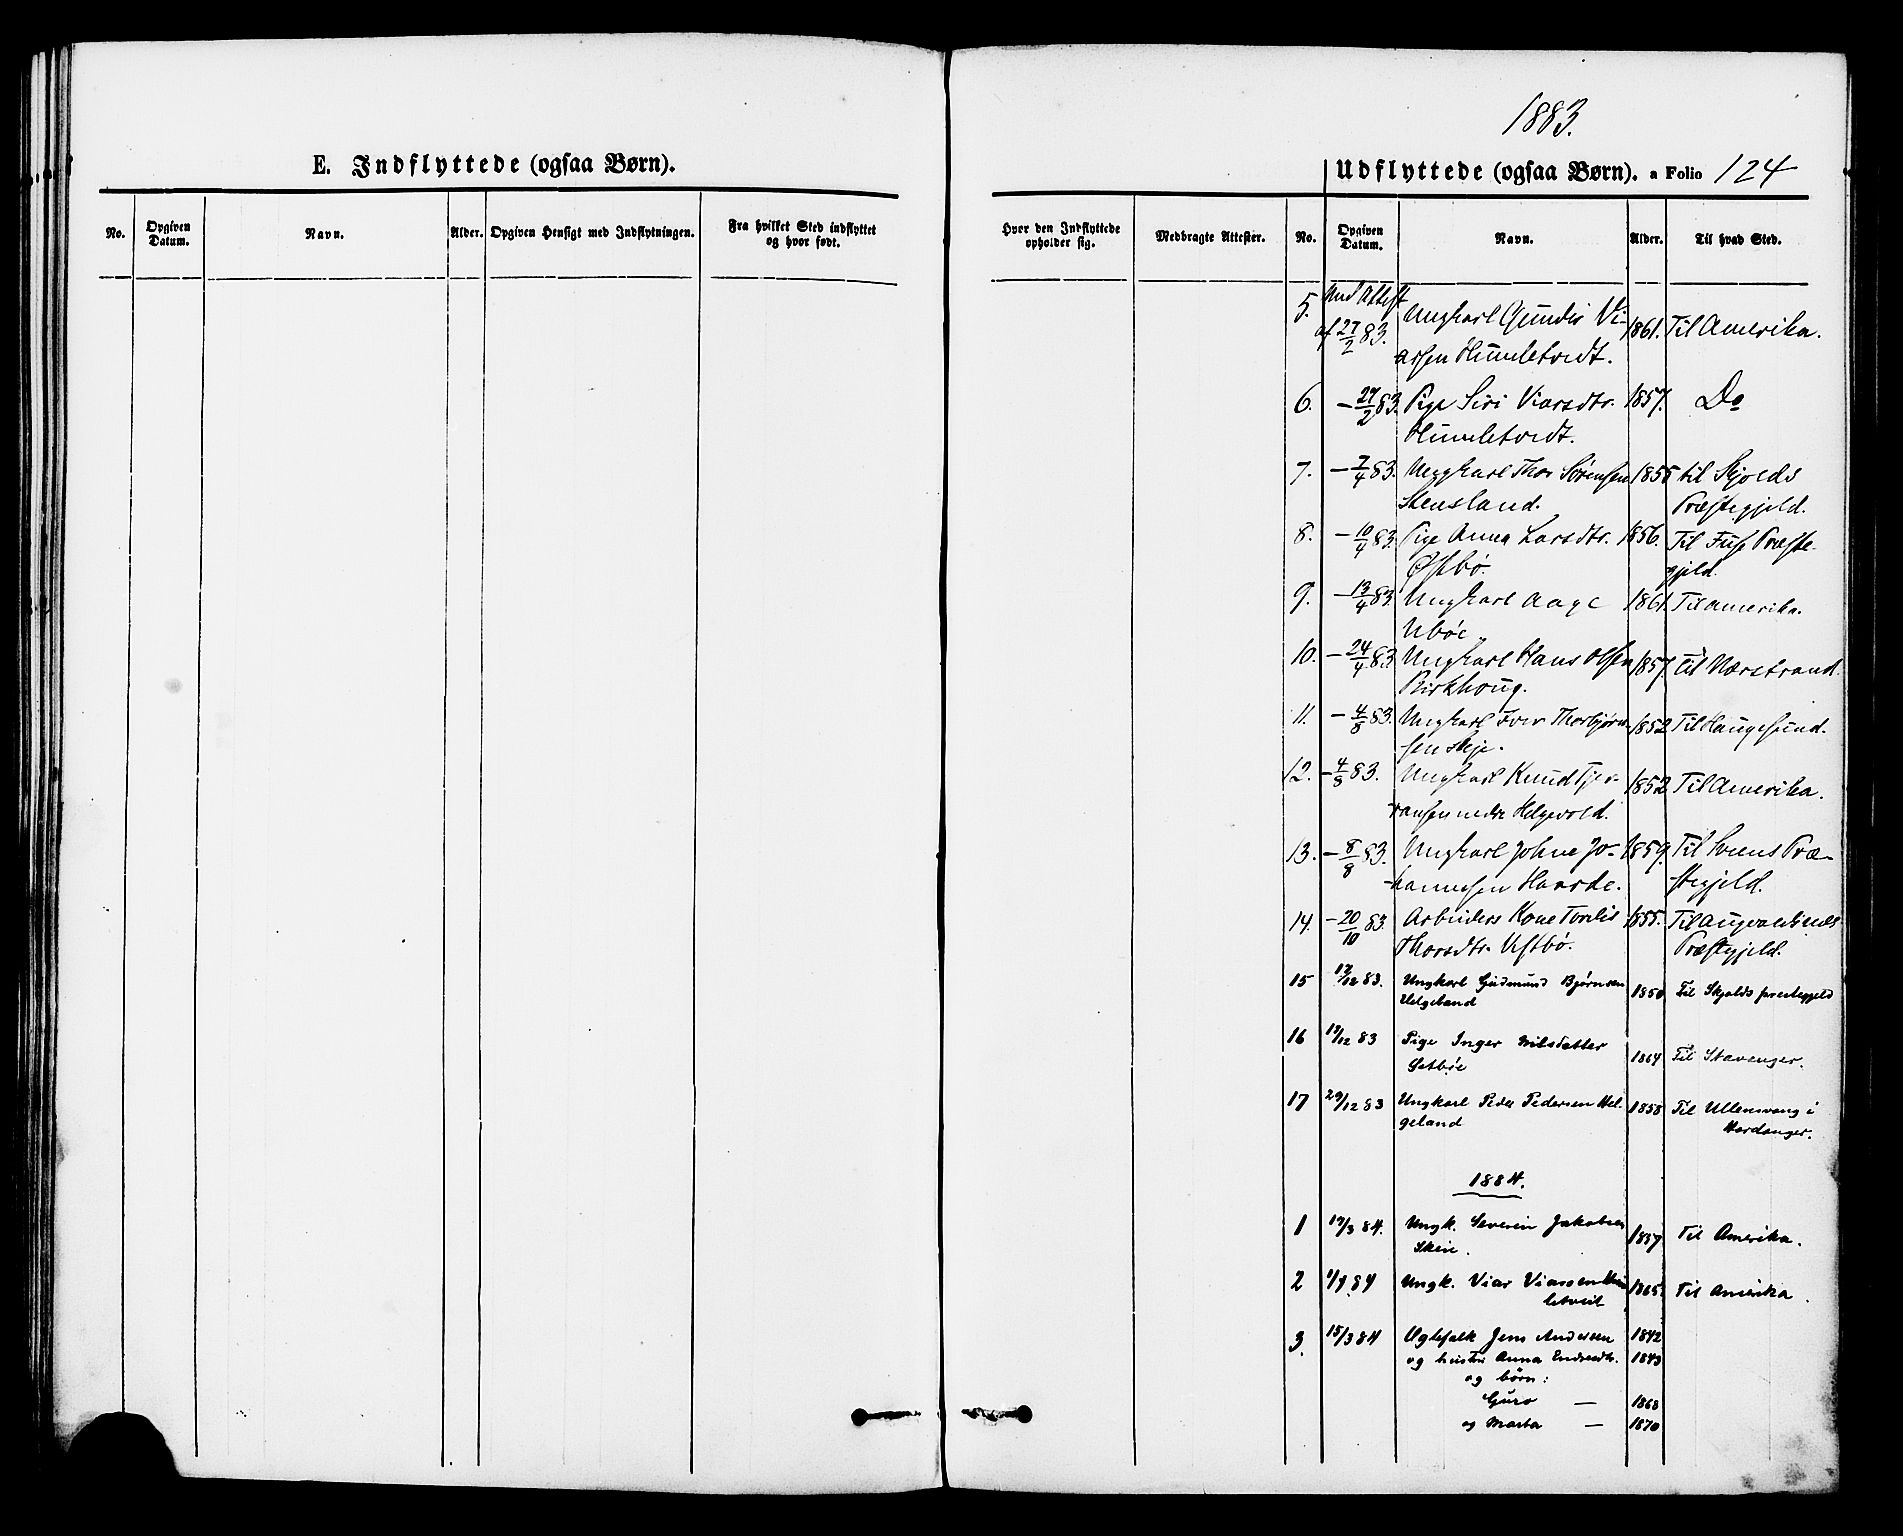 1883.
E. Indflyttede (ogsaa Børn).
Udflyttede (ogsaa Børn). a Folio 124
No.
Opgiven Datum.
Navn.
Alder.
Opgiven Hensigt med Indflytningen.
Fra hvilket Sted indflyttet og hvor født.
Hvor den Indflyttede opholder sig.
Medbragte Attester.
No.
Opgiven Datum.
Navn.
Alder.
Til hvad Sted.
5. Med Attest af 27/2 83. Ungkarl Gunder Vi- 1861. Til Amerika.
arsen Humletvedt.
6. – 27/2 83. Pige Siri Viarsdtr. 1857. Do
Humletvedt.
7. – 7/4 83. Ungkarl Thor Sørensen 1855 til Skjolds
Stensland. Præstegjeld.
8. – 10/4 83. Pige Anna Larsdtr. 1856. Til Fuse Præste-
Østbø. gjeld.
9. – 13/4 83. Ungkarl Aage 1861. Til Amerika.
Ubøe.
10. – 24/4 83. Ungkarl Hans Olsen 1857. til Nærstrand.
Birkhoug.
11. – 4/8 83. Ungkarl Iver Thorbjørn- 1852 Til Haugesund.
sen Skeje.
12. – 4/8 83. Ungkarl Knud Tjer- 1852. Til Amerika.
ransen nedre Helgevold.
13. – 8/8 83. Ungkarl Johne Jo- 1859. Til Sveens Præ-
hannesen Haarde. stegjeld.
14. – 20/10 83. Arbeiders Kone Tordis 1855. Til Augvaldsnes
Thorsdtr. Østbø. Præstegjeld.
15 /12 83. Ungkarl Gudmund Bjørnsen 1850 Til Skjolds præstegjeld
Helgeland
16 /12 83 Pige Inger Nilsdatter
1864 Til Stavenger.
17 29/12 83 Ungkarl Peder Pedersen Hel- 1858 Til Ullensvang i
geland Hardanger.
1884.
1 /3 84. Ungk. Severin Jakobsen
Skeie. 1857 Til Amerika.
2 84 Ungk. Viar Viarsen Hum- 1865. Til Amerika.
letveit
3. 15/3 84 Ægtefolk Jens Andersen 1842
og hustru Anna Endresdtr. 1843
og børn:
Guro — 1868
og Marta — 1870